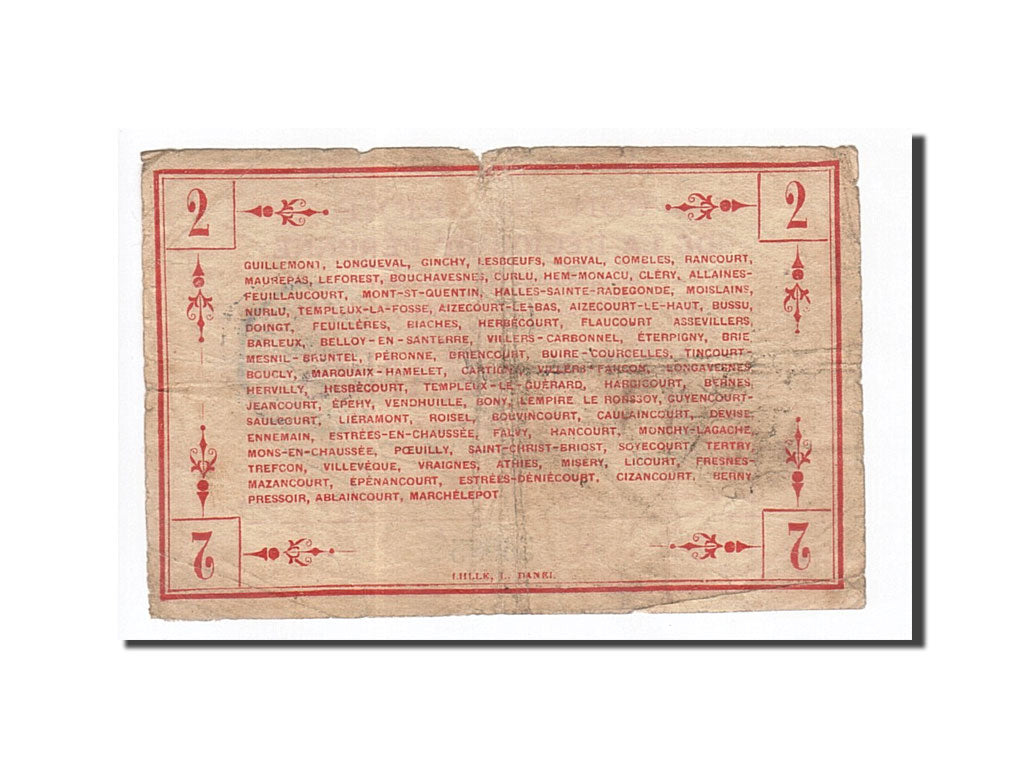 2 2
GUILLEMONT, LONGUEVAL, GINCHY, LESBŒUFS, MORVAL, COMBLES, RANCOURT,
MAUREPAS, LEFOREST, BOUCHAVESNES, CURLU, HEM-MONACU, CLÉRY, ALLAINES-
FEUILLAUCOURT, MONT-ST-QUENTIN, HALLES-SAINTE-RADEGONDE, MOISLAINS,
NURLU, TEMPLEUX-LA-FOSSE, AIZECOURT-LE-BAS, AIZECOURT-LE-HAUT, BUSSU,
DOINGT, FEUILLÈRES, BIACHES, HERBÉCOURT, FLAUCOURT ASSEVILLERS,
BARLEUX, BELLOY-EN-SANTERRE, VILLERS-CARBONNEL, ÉTERPIGNY, BRIE
MESNIL-BRUNTEL, PÉRONNE, BRIENCOURT, BUIRE-COURCELLES, TINCOURT-
BOUCLY, MARQUAIX-HAMELET, CARTIGNY, VILLERS-FAUCON, LONGAVESNES
HERVILLY, HESBÉCOURT, TEMPLEUX-LE-GUÉRARD, HARGICOURT, BERNES,
JEANCOURT, ÉPEHY, VENDHUILLE, BONY, LEMPIRE LE RONSSOY, GUYENCOURT-
SAULCOURT, LIÉRAMONT, ROISEL, BOUVINCOURT, CAULAINCOURT, DEVISE
ENNEMAIN, ESTRÉES-EN-CHAUSSÉE, FALVY, HANCOURT, MONCHY-LAGACHE,
MONS-EN-CHAUSSÉE, PŒUILLY, SAINT-CHRIST-BRIOST, SOYECOURT TERTRY,
TREFCON, VILLEVÉQUE, VRAIGNES, ATHIES, MISÉRY, LICOURT, FRESNES-
MAZANCOURT, ÉPÉNANCOURT, ESTRÉES-DÉNIÉCOURT, CIZANCOURT, BERNY
PRESSOIR, ABLAINCOURT, MARCHÉLEPOT
2 2
LILLE, L. DANEL